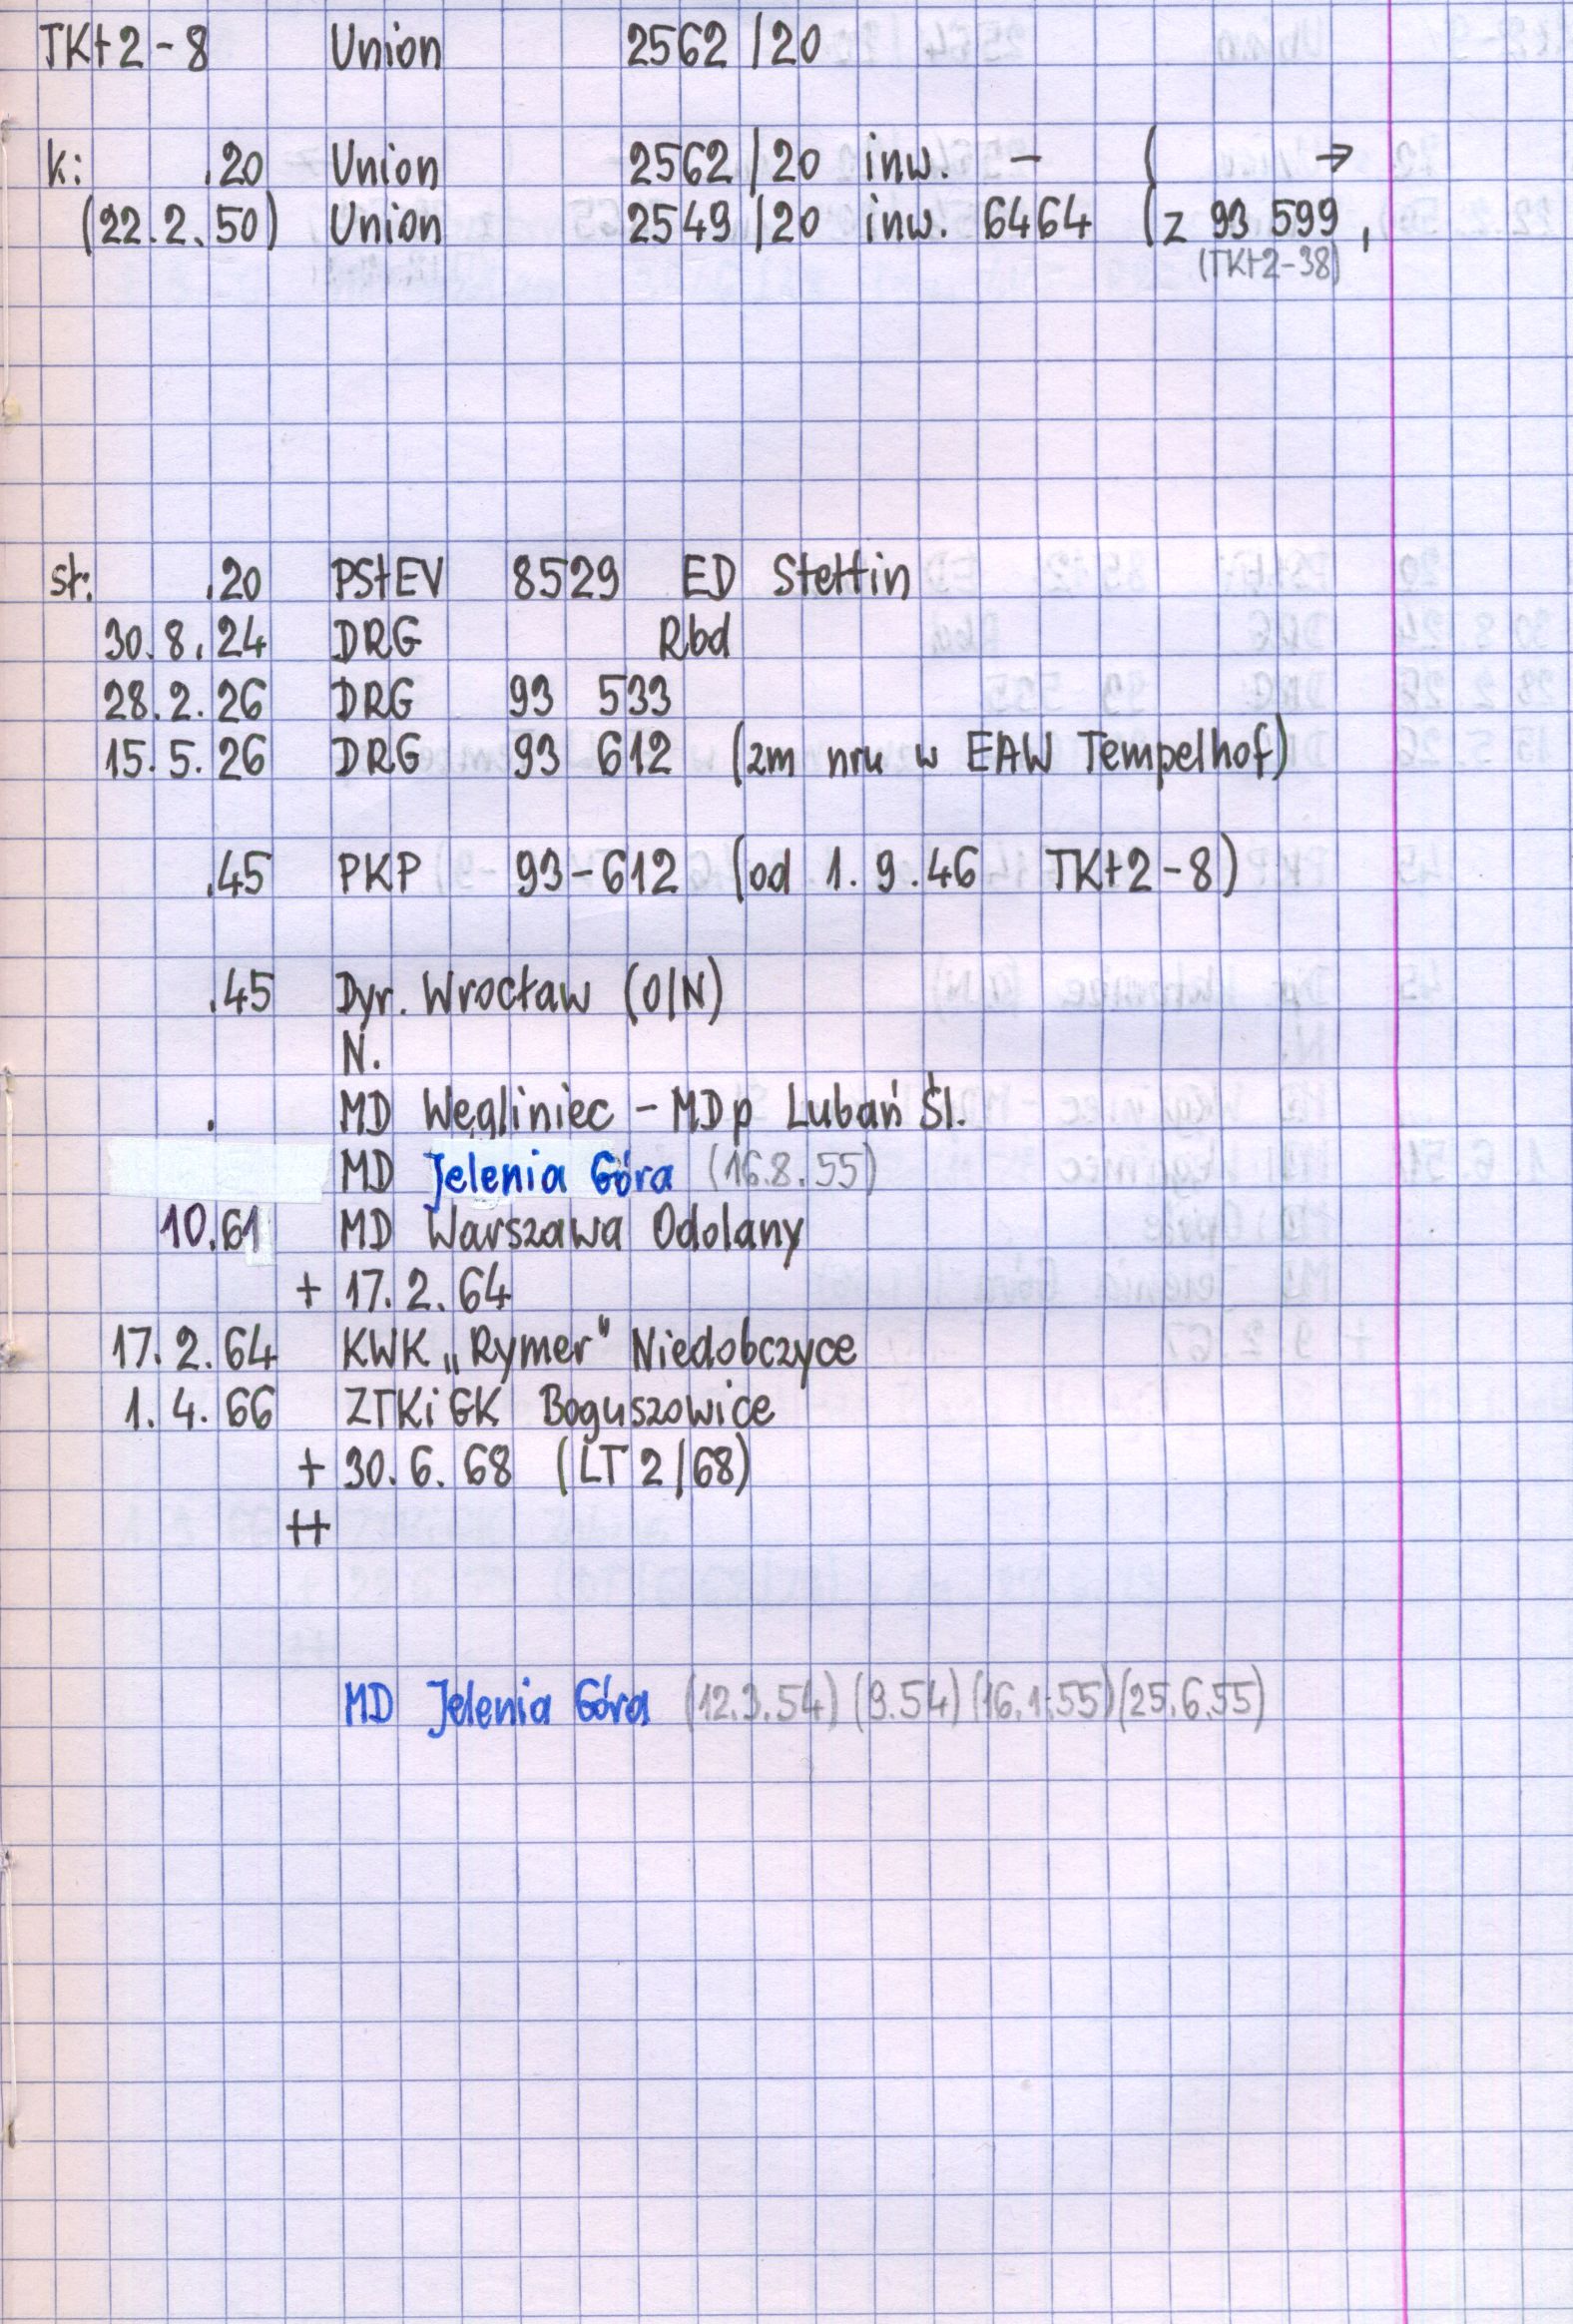 TKt2-8 Union 2562/20
k: .20 Union 2562/20 inw. - ( →
(22.2.50) Union 2549/20 inw. 6464 (z 93 599,
(TKt2-38)
st: .20 PStEV 8529 ED Stettin
30.8.24 DRG Rbd
28.2.26 DRG 93 533
15.5.26 DRG 93 612 (zm nru w EAW Tempelhof)
.45 PKP 93-612 (od 1.9.46 TKt2-8)
.45 Dyr. Wrocław (O/N)
N.
. MD Węgliniec - MDp Lubań Śl.
MD Jelenia Góra (16.8.55)
10.61 MD Warszawa Odolany
+ 17.2.64
17.2.64 KWK „Rymer" Niedobczyce
1.4.66 ZTKiGK Boguszowice
+ 30.6.68 (LT 2/68)
++
MD Jelenia Góra (12.3.54) (9.54) (16.1.55) (25.6.55)